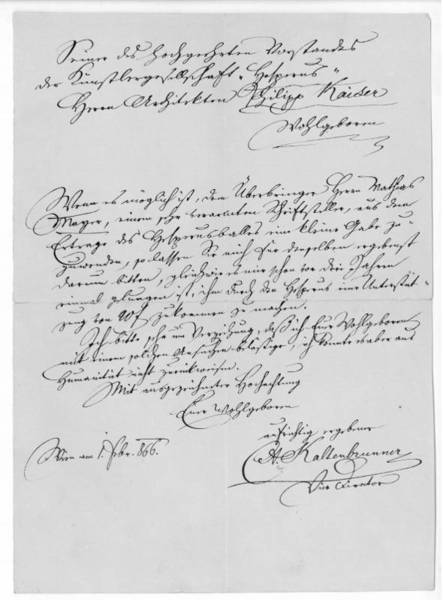 Seiner des hochgeehrten Vorstandes
der Künstlergesellschaft „Hesperus“
Herrn Architekten Philipp Kaiser
Wohlgeboren
Wenn es möglich ist, dem Überbringer Herrn Mathias
Mayer, einem sehr verarmten Schriftsteller, aus dem
Ertrage des Hesperusballes eine kleine Gabe zu-
zuwenden, so lassen Sie mich für denselben ergebenst
darum bitten, gleichwie es mir schon vor drei Jahren
einmal gelungen ist, ihm durch die Hesperus eine Unterstüt-
zung von 40 f zukommen zu machen.
Ich bitte sehr um Verzeihung, daß ich Euer Wohlgeboren
mit einem solchen Ansuchen belästige, ich konnte es aber aus
Humanität nicht zurückweisen.
Mit ausgezeichneter Hochachtung
Euer Wohlgeboren
aufrichtig ergebener
Wien am 1. Febr. 866.
Kaltenbrunner